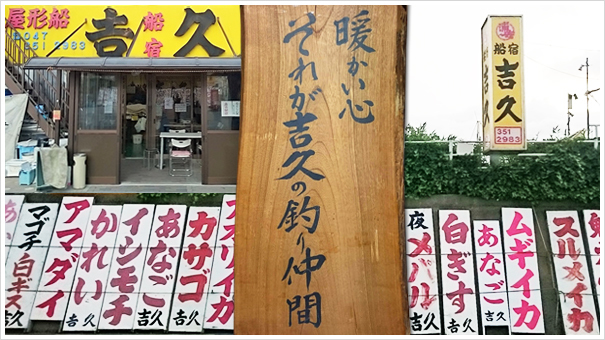 屋形船
047
351 2983
吉久
船宿
吉久
暖かい心
それが吉久の釣り仲間
船宿
吉久
351
2983
マゴチ 白ギス
アマダイ
かれい
吉久
イシモチ
あなご
吉久
カサゴ
吉久
アオリイカ
夜メバル
吉久
白ぎす
吉久
あなご
吉久
ムギイカ
スルメイカ